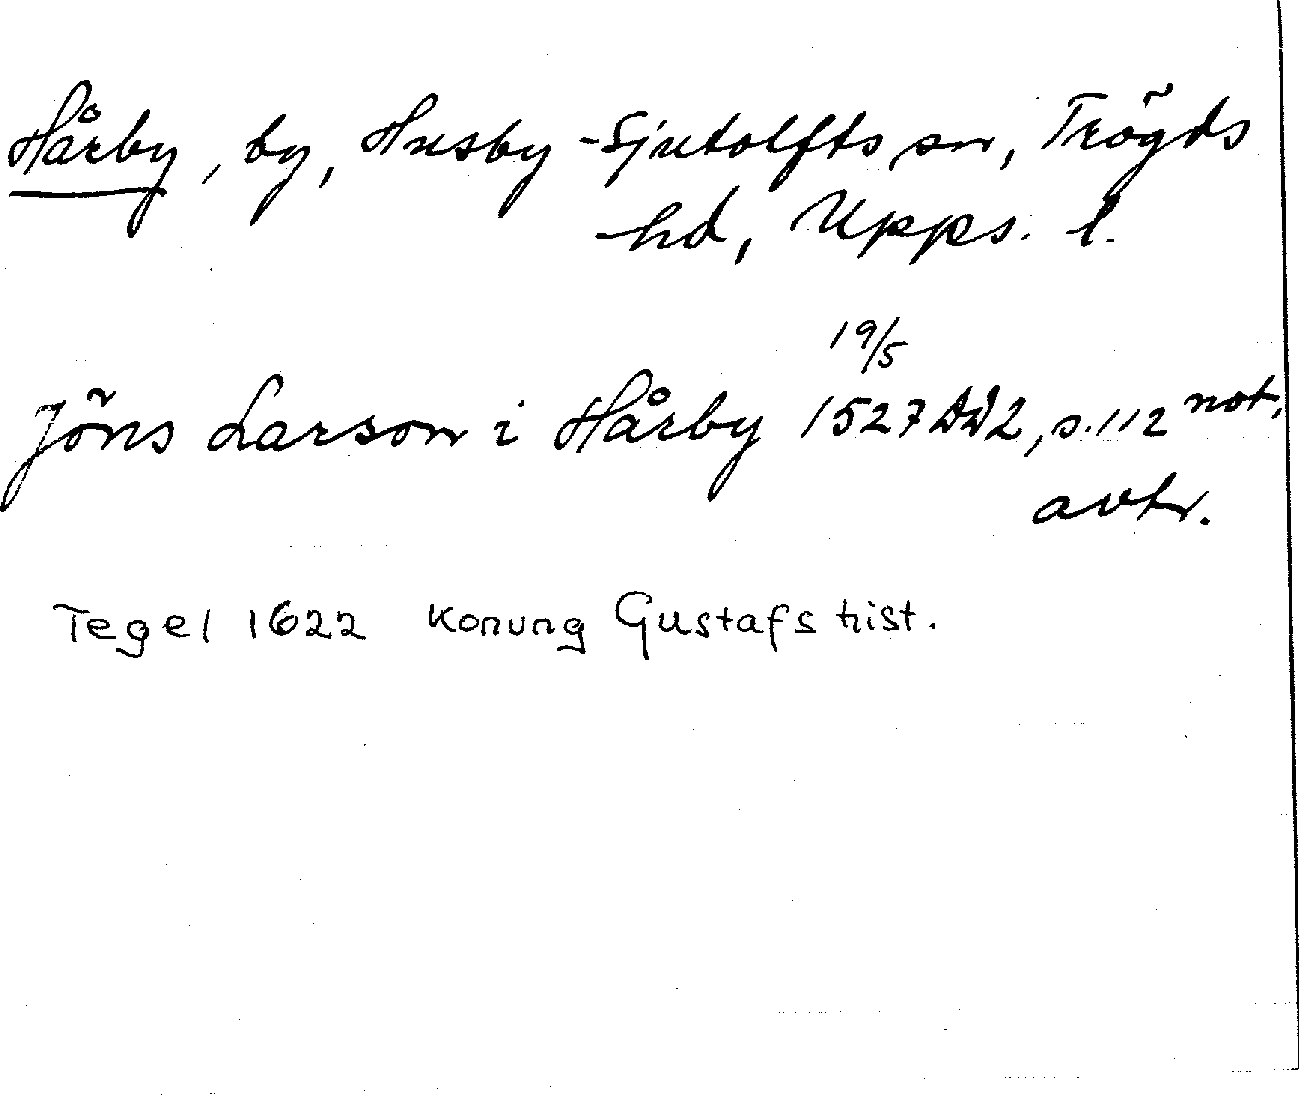 Hårby, by, Husby-Sjutolfts sn, Trögds
hd, Upps. l.
19/5
Jöns Larson i Hårby 1527 DD2, s.112 not,
avtr.
Tegel 1622 Konung Gustafs hist.